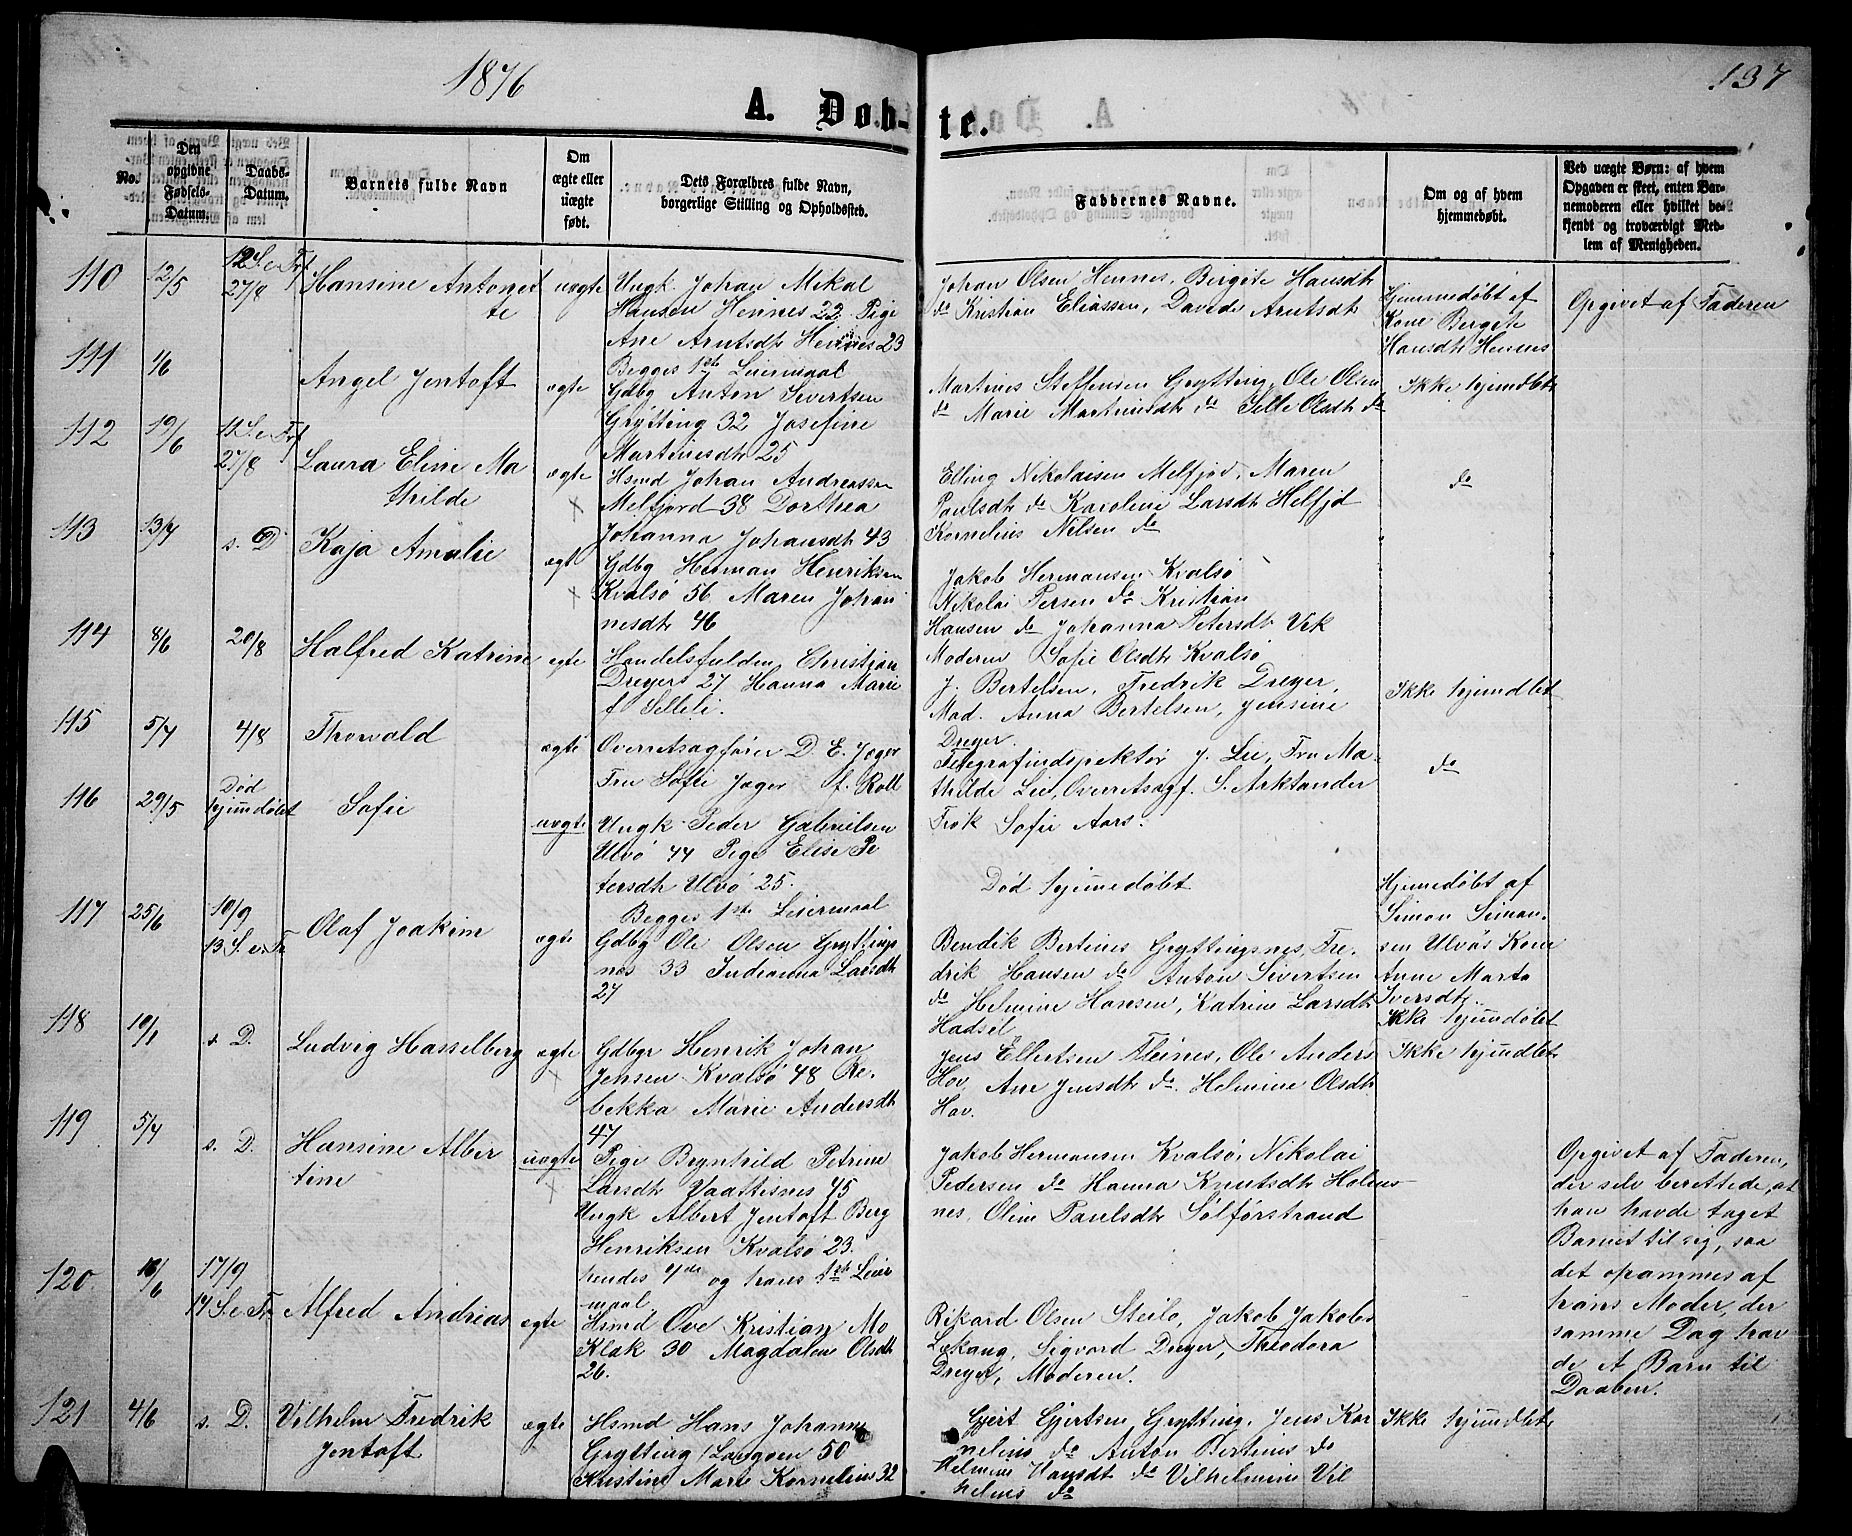 1876
137
A. Døb-te.
No.
Den opgivne Fødsels-Datum.
Daabs-Datum.
Barnets fulde Navn
Om ægte eller uægte født.
Dets Forældres fulde Navn, borgerlige Stilling og Opholdssted.
Faddernes Navne.
Om og af hvem hjemmedøbt.
Ved uægte Børn: af hvem Opgaven er skeet, enten Barnemoderen eller hvilket bekjendt og troværdigt Medlem af Menigheden.
110
12/5
12 S. e. Trf
27/8
Hansine Antonet
te
uægte
Ungk. Johan Mikal
Hansen Hennes 22 Pige
Ane Arntsdtr Hennes 23
Begges 1ste Leiermaal
Johan Olsen Hennes, Birgste Hansdtr
do Kristian Eliassen, Davida Arntsdtr
Hjemmedøbt af
Kone Bergete
Hansdtr Hennes
Opgivet af Faderen
111
1/6
Angel Jentoft
ægte
Gdbg Anton Sivertsen
Grytting 32 Josefine
Martinesdtr 25
Martines Steffensen Grytting, Ole Olsen
do Marie Martinusdtr do Sille Olsdtr do
Ikke hjemdbt
112
19/6
11 S. e. Trf
27/8
Laura Eline Ma
thilde
ægte
Hsmd Johan Andreassen
Melfjord 38 Dorthea
Johanna Johansdtr 43
Elling Nikolaisen Melfjod, Maren
Paulsdtr do Karoline Larsdtr Melfjd
Kornelius Nilsen do
do
113
13/7
s. D
Kaja Amalie
ægt
Gdbg Herman Henriksen
Kvalsø 56 Maren Johan
nesdtr 46
Jakob Hermansen Kvalsø
Nikolai Persen do Kristian
Hansen do Johanna Petersdtr Vik
Moderen Sofie Olsdtr Kvalsø
114
8/6
20/8
Halfred Katrine
egte
Handelsfuldm Christian
Dreyer 27 Hanna Marie
f
J. Bertelsen, Fredrik Dreyer,
Mad. Anna Bertelsen, Jensine
Dreyer.
Ikke hjemdbt
115
5/7
4/8
Thorvald
ægte
Overretsagfører D. E. Jager
Fru Sofie Jager f. Roll
Telegrafindspektør J. Lie, Fru Ma-
thilde Lie, Overretsagf. S. Arktander
Frøk Sofie Aars.
do
116
29/5
Død
hjemdøbt
Sofie
uægte
Ungk Peder Gabrielsen
Ulvø 44 Pige Elise Pe
tersdtr Ulvø 25.
Begges 1ste Leiermaal
Død hjemedøbt
Hjemedøbt af
Simon Siman-
sen Ulvøs Kone
Anne Marta
Iversdtr.
117
25/6
10/9
13 S. e. Tr
Olaf Joakim
ægte
Gdbg Ole Olsen Gryttings
nes 33 Indianna Larsdtr
27
Bendik Bertines Gryttingsnes, Fre-
drik Hansen do Anton Sivertsen
do Helmine Hansen, Katrine Larsdtr
Hadsel
Ikke hjemdøbt
118
10/1
s. D.
Ludvig Hasselberg
ægte
Gdbgr Henrik Johan
Jensen Kvalsø 48 Re-
bekka Marie Andersdtr
47
Jens Ellertsen Fleines, Ole Anders
Hov, Ane Jensdtr do. Helmine Olsdtr
Hov.
Ikke hjemdbt
119
5/7
s. D.
Hansine Alber
tine
uægte
Pige Brynhild Petrine
Larsdtr Vaattisnes 45
Ungk Albert Jentoft Berg
Henriksen Kvalsø 23.
hendes og hans 1ste Leier
maal
Jakob Hermansen Kvalsø, Nikolai
Pedersen do Hanna Knutsdtr Holms-
nes, Oline Paulsdtr Sølførstrand
Opgivet af Faderen,
der selv berettede, at
han havde taget
Barnet til sig, saa
det opammes af
hans Moder, der
samme Dag hav-
de et Barn til
Daaben.
120.
10/6
17/9
14 S. e. Tr
Alfred Andrias
egte
Hsmd Ove Kristian Mo
Klak 30 Magdalene Olsdtr
26.
Rikard Olsen Steilo, Jakob Jakobs
Lekang, Sigvard Dreyer, Theodora
Dreyer, Moderen.
121
4/6
s. D.
Vilhelm Fredrik
Jentoft
ægte
Hsmd Hans Johann
Grytting /Langøen 50
Kristine Marie Kornelius 32
Gjert Gjertsen Grytting, Jens Kor
nelius do Anton Bertines do
Helmine Hansdt do Vilhelmine Vil
helms do
Ikke hjemdbt